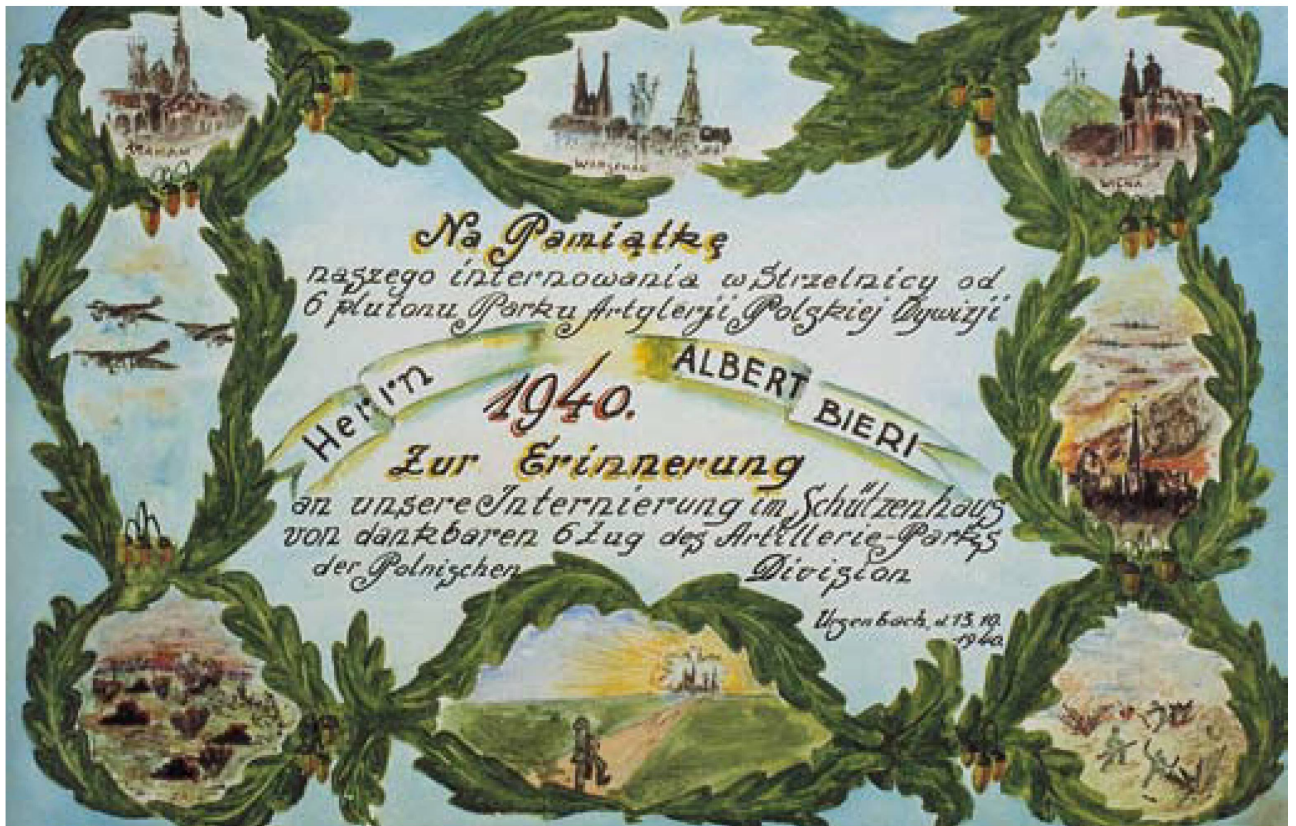 WARSCHAU
WILNA
Na Pamiątkę
naszego internowania w Strzelnicy od
6 plutonu Parku Artylerji Polskiej Dywizji
Herrn ALBERT BIERI
1940.
Zur Erinnerung
an unsere Internierung im Schützenhaus
von dankbaren 6 Zug des Artillerie-Parks
der Polnischen Division
Ursenbach, d. 13.10.
1940.